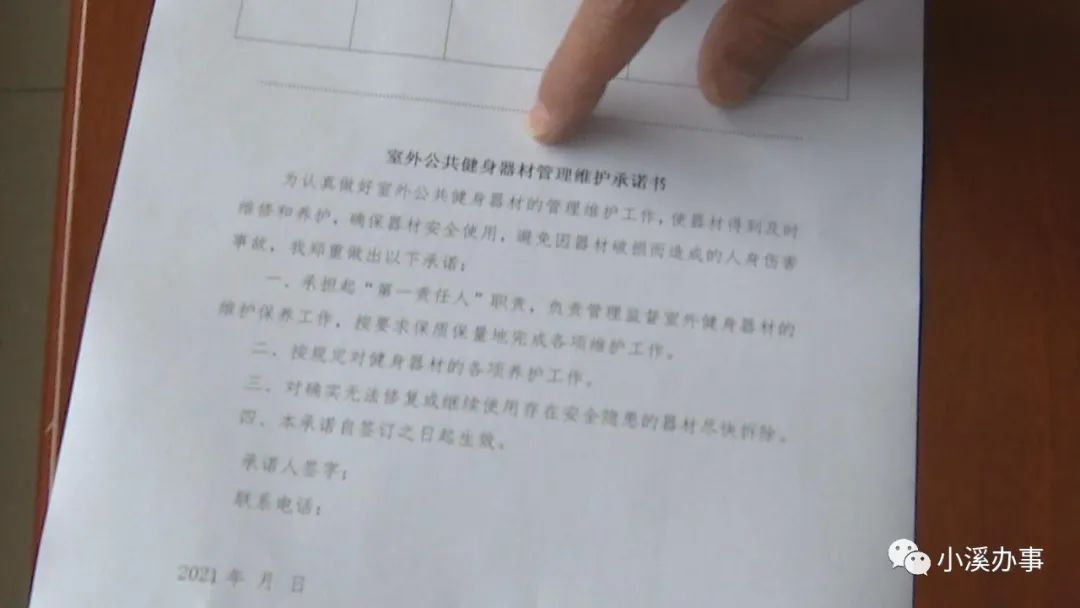 室外公共健身器材管理维护承诺书
为认真做好室外公共健身器材的管理维护工作，使器材得到及时
维修和养护，确保器材安全使用，避免因器材破损而造成的人身伤害
事故，我郑重做出以下承诺：
一、承担起“第一责任人”职责，负责管理监督室外健身器材的
维护保养工作，按要求保质保量地完成各项维护工作。
二、按规定对健身器材的各项养护工作。
三、对确实无法修复或继续使用存在安全隐患的器材尽快拆除。
四、本承诺自签订之日起生效。
承诺人签字：
联系电话：
2021 年 月 日
小溪办事